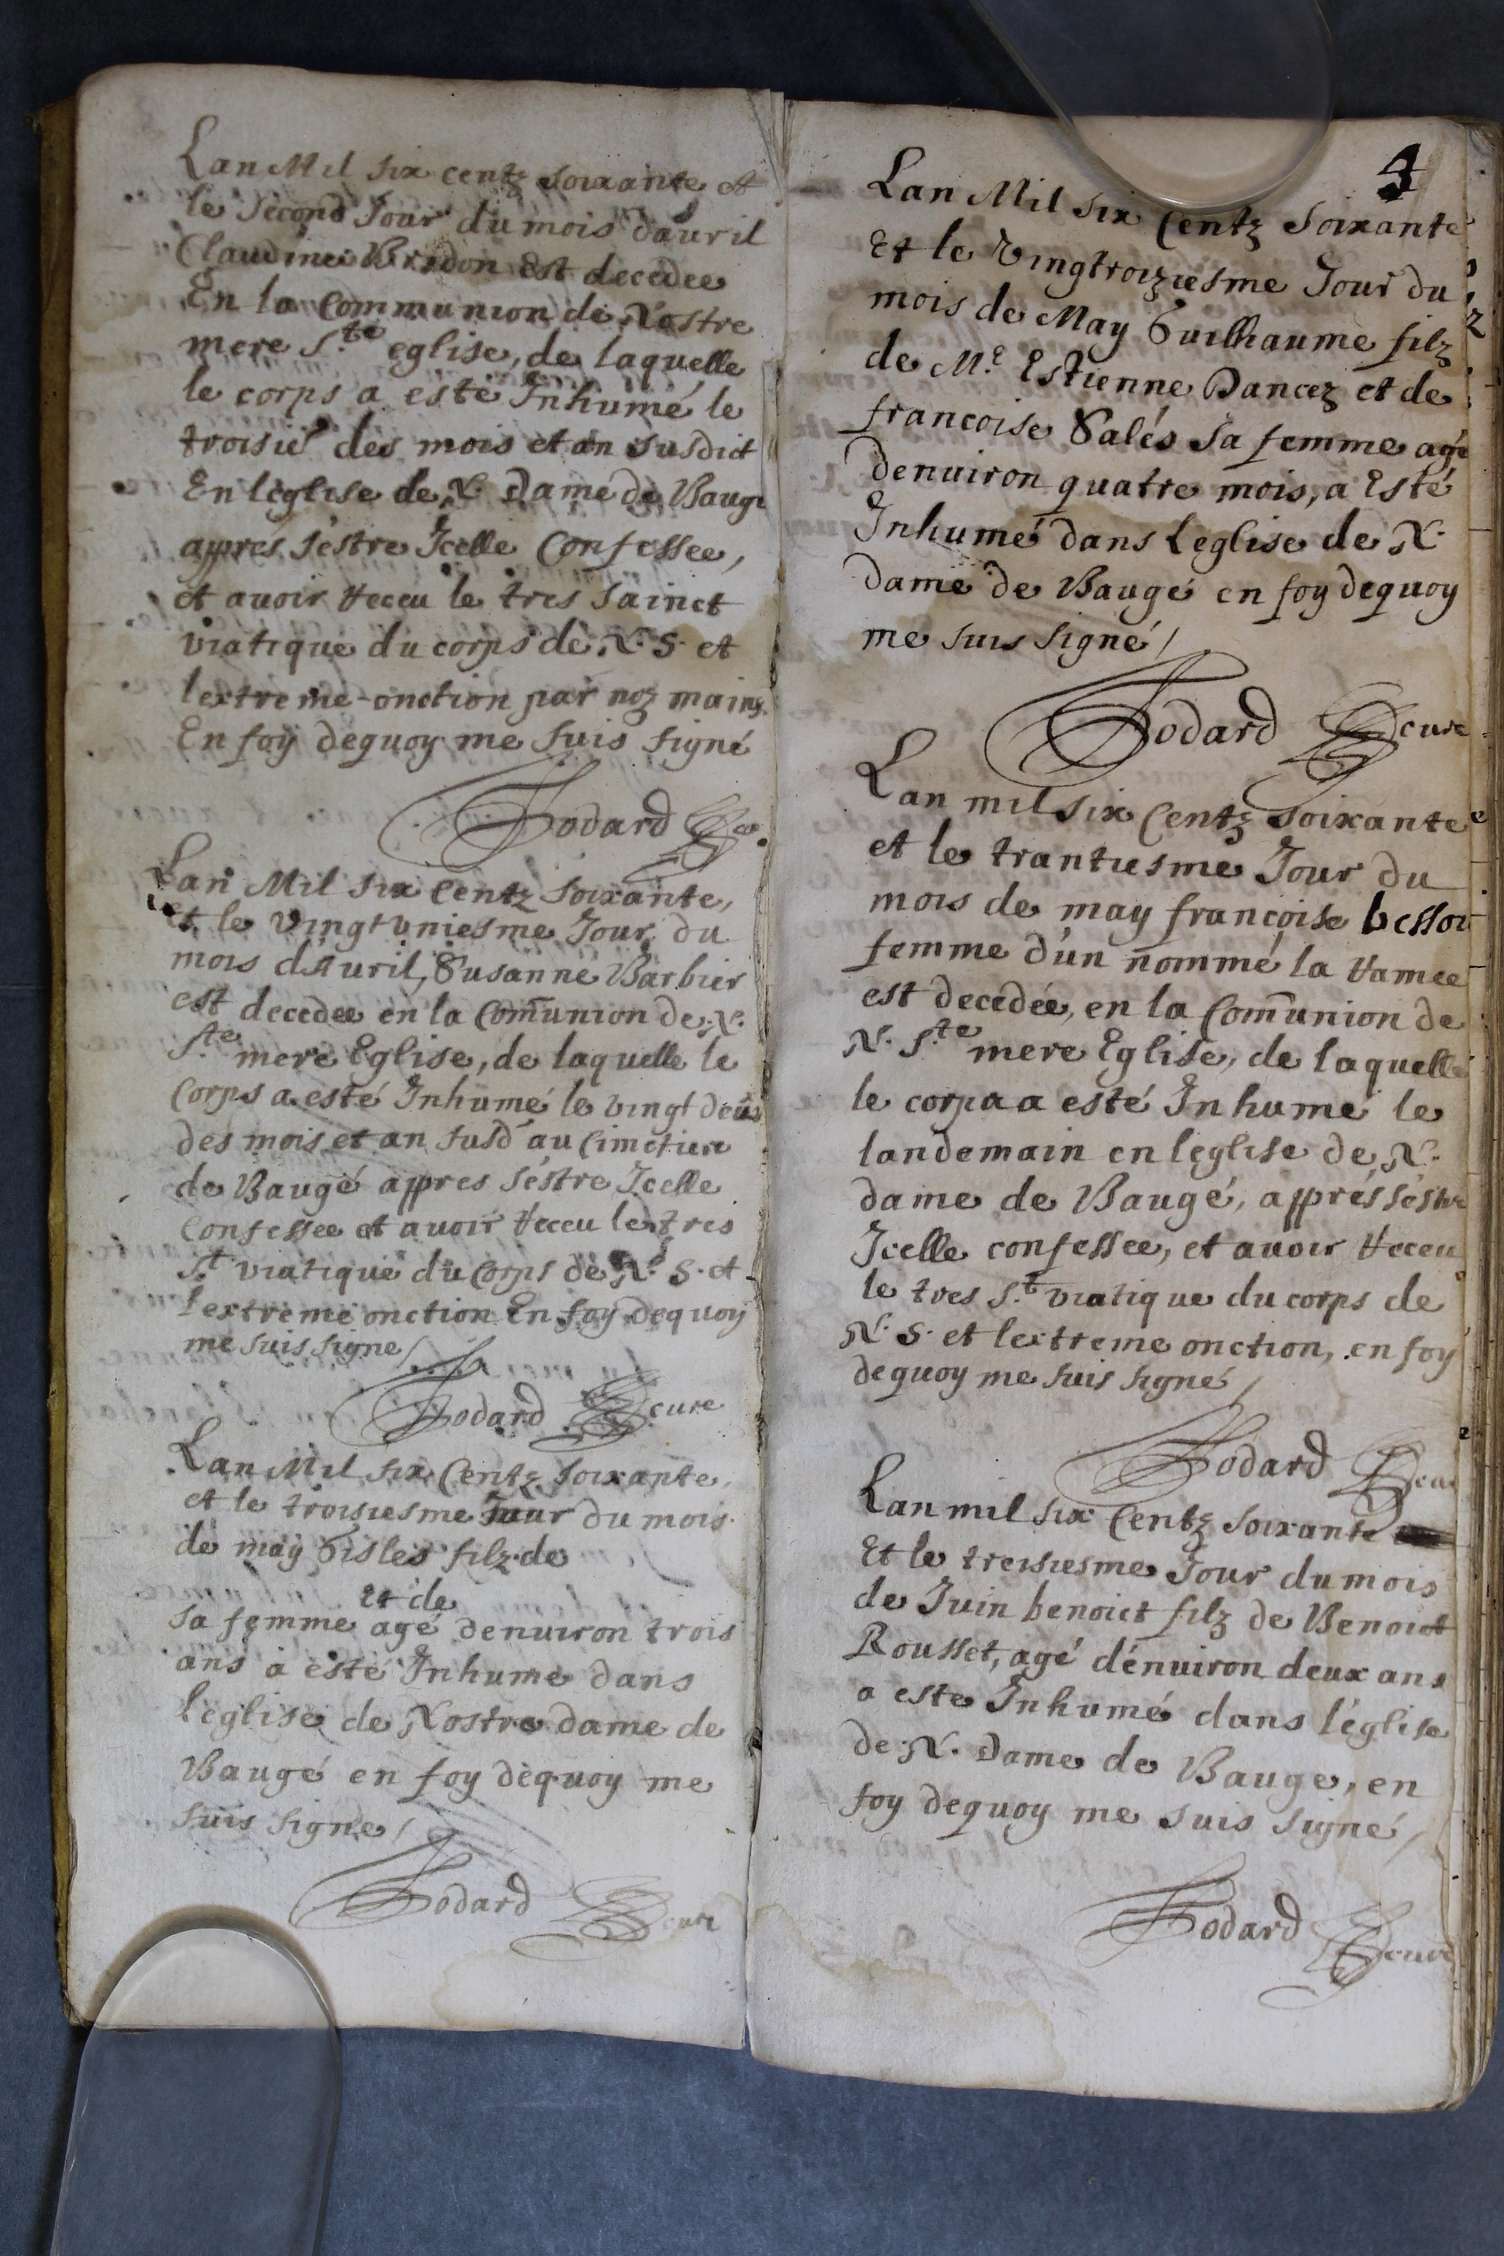 Lan Mil six centz soixante et
le second Jour du mois dauril
Claudine Bredon est decedee
En la Communion de Nostre
mere S.te eglise, de laquelle
le corps a esté Inhumé le
troisie des mois et an susdict
En leglise de N. Dame de Baugé
appres s'estre Icelle Confessee,
et auoir Receu le tres sainct
viatique du corps de N. S. et
lextreme-onction par noz mains.
En foy dequoy me suis signé
Jodard
Lan Mil six Centz soixante,
et le vingt vniesme Jour du
mois dAuril, Susanne Barbier
est decedee en la Com̄union de N.
S.te mere Eglise, de laquelle le
Corps a esté Inhumé le vingt deus
des mois et an susd au Cimetiere
de Baugé appres s'estre Icelle
Confessee et auoir Receu le tres
S.t viatique du Corps de N. S. et
lextreme onction En foy dequoy
me suis signe /
Jodard cure
Lan Mil six Centz soixante
et le troisiesme Jour du mois
de may Gisles filz de
et de
sa femme agé denuiron trois
ans a esté Inhume dans
l'eglise de Nostre dame de
Baugé en foy dequoy me
suis signe /
Jodard cure
4
Lan Mil six Centz soixante
Et le Vingtroiziesme Jour du
mois de May Guilhaume filz
de M.e Estienne Dancez et de
francoise Salés sa femme agé
denuiron quatre mois, a Esté
Inhumé dans Leglise de N.
dame de Baugé en foy dequoy
me suis signé /
Jodard cure
Lan mil six Centz soixante
et le trantiesme Jour du
mois de may francoise besson
femme d'un nommé la Ramee
est decedée, en la Com̄union de
N. S.te mere Eglise, de laquelle
le corpa a esté Inhumé le
landemain en leglise de N.
dame de Baugé, apprés s'estre
Icelle confessee, et auoir Receu
le tres S.t viatique du corps de
N. S. et lextreme onction, en foy
dequoy me suis signé /
Jodard cure
Lan mil six Centz soixante
Et le treisiesme Jour du mois
de Juin benoict filz de Benoict
Rousset, agé d'enuiron deux ans
a este Inhumé dans l'église
de N. Dame de Bauge, en
foy dequoy me suis signé /
Jodard cure